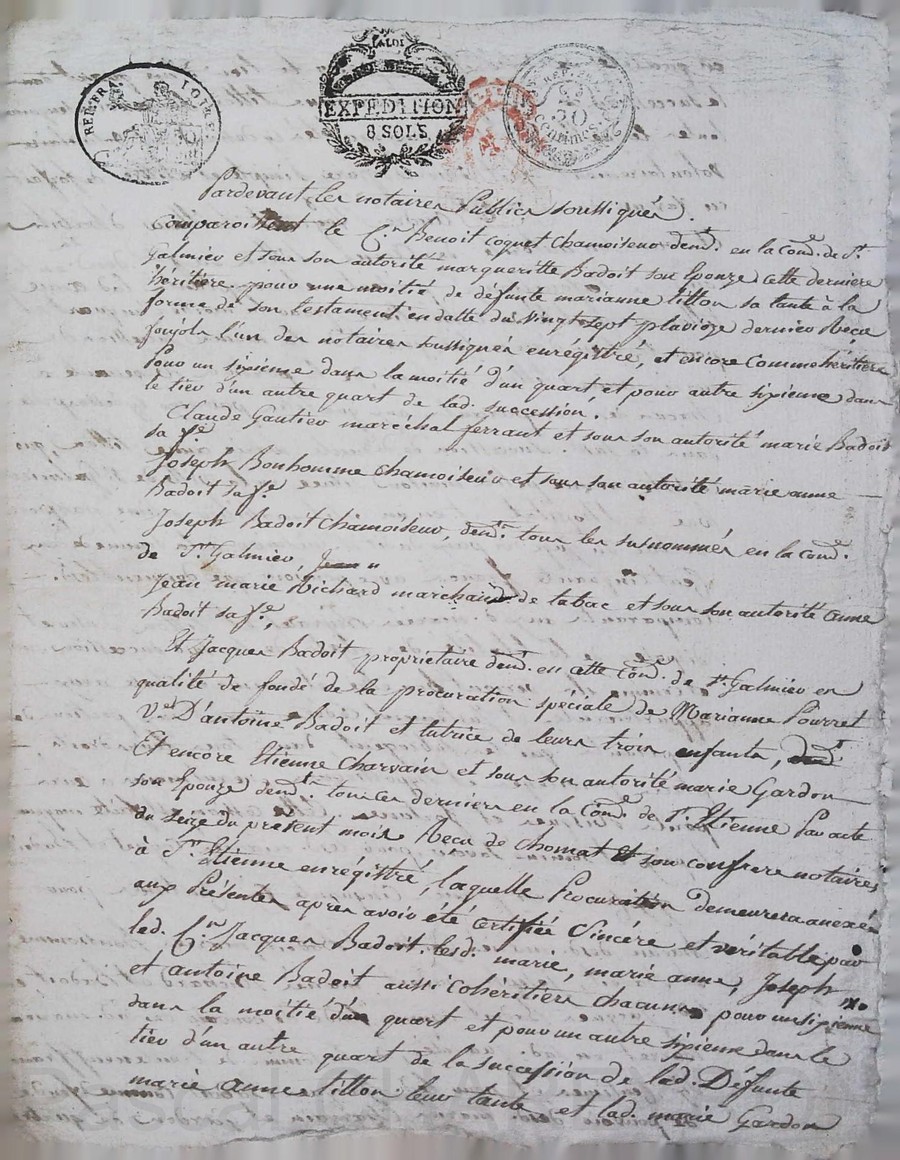 REP. FRA.
LA LOI
EXPÉDITION
8 SOLS
REP. FRA.
50
centimes
Pardevant les notaires Publics soussignés.
Comparoissent le C.en Benoit Coquet Chamoiseur demt. en la Coñe. de St.
Galmier et sous son autorité margueritte Badoit son Epouze cette derniere
héritière pour une moitié de défunte marianne titton sa tante à la
forme de son testament en datte du vingt sept pluvioze dernier Reçu
Joujols l'un des notaires soussignés enrégistré, et encore Commohéritiere
Pour un sixieme dans la moitié d'un quart, et pour autre sixieme dans
le tier d'un autre quart de lad. succession.
Claude Gautier maréchal ferrant et sous son autorité marie Badoit
sa fe.
Joseph Bonhomme Chamoiseur et sous son autorité marie anne
Badoit sa fe.
Joseph Badoit Chamoiseur, demts. tous les susnommés en la Coñe.
de St. Galmier, Jean
Jean marie Richard marchand de tabac et sous son autorité anne
Badoit sa fe.,
Et Jacques Badoit propriétaire demt. en cette Coñe. de St. Galmier en
qualité de fondé de la procuration spéciale de Marianne Pourret
Ve. D'antoine Badoit et tutrice de leurs trois enfants, demt
Et encore Etienne Charvain et sous son autorité marie Gardon
son Epouze demts. tous ces derniers en la Coñe. de St. Etienne Par acte
du seize du présent mois Recu de Chomat et son confrere notaires
à St. Etienne enrégistré, laquelle Procuration demeurera anexée
aux Présentes après avoir été certifiée Sincére et véritable par
led. C.en Jacques Badoit. lesd. marie, marie anne, Joseph
et antoine Badoit aussi Cohéritiers chacuns pour un sixieme
dans la moitié d'un quart et pour un autre sixieme dans le
tier d'un autre quart de la succession de lad. Défunte
marie anne titton leur tante et lad. marie Gardon